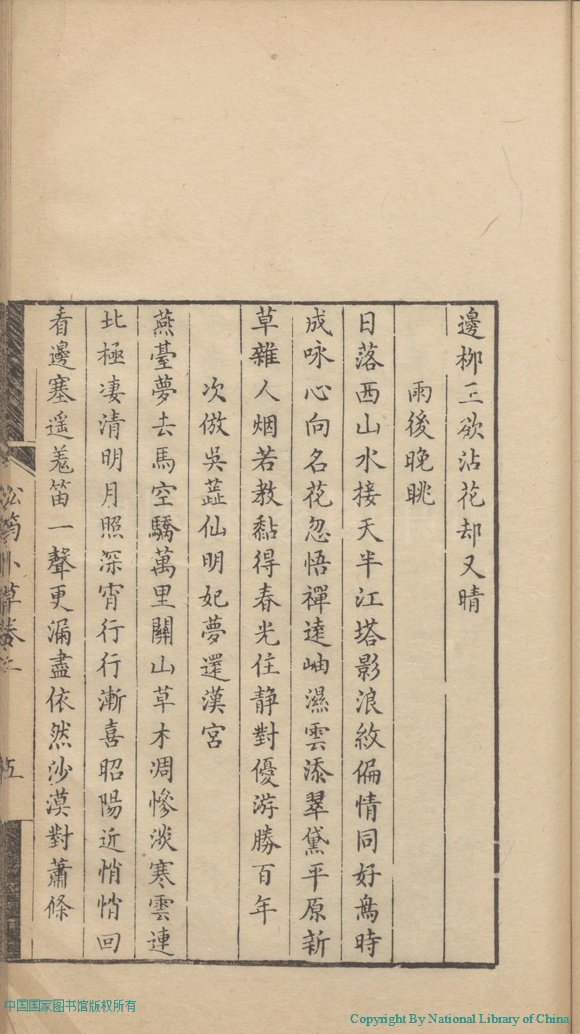 邊柳正欲沾花却又晴
雨後晚眺
日落西山水接天半江塔影浪紋偏情同好鳥時
成咏心向名花忽悟禪遠岫濕雲添翠黛平原新
草雜人烟若教黏得春光住静對優游勝百年
次倣吳蘂仙明妃夢還漢宮
燕臺夢去馬空驕萬里關山草木凋慘淡寒雲連
北極凄清明月照深宵行行漸喜昭陽近悄悄回
看邊塞遥羗笛一聲更漏盡依然沙漠對蕭條
中国国家图书馆版权所有
Copyright By National Library of China